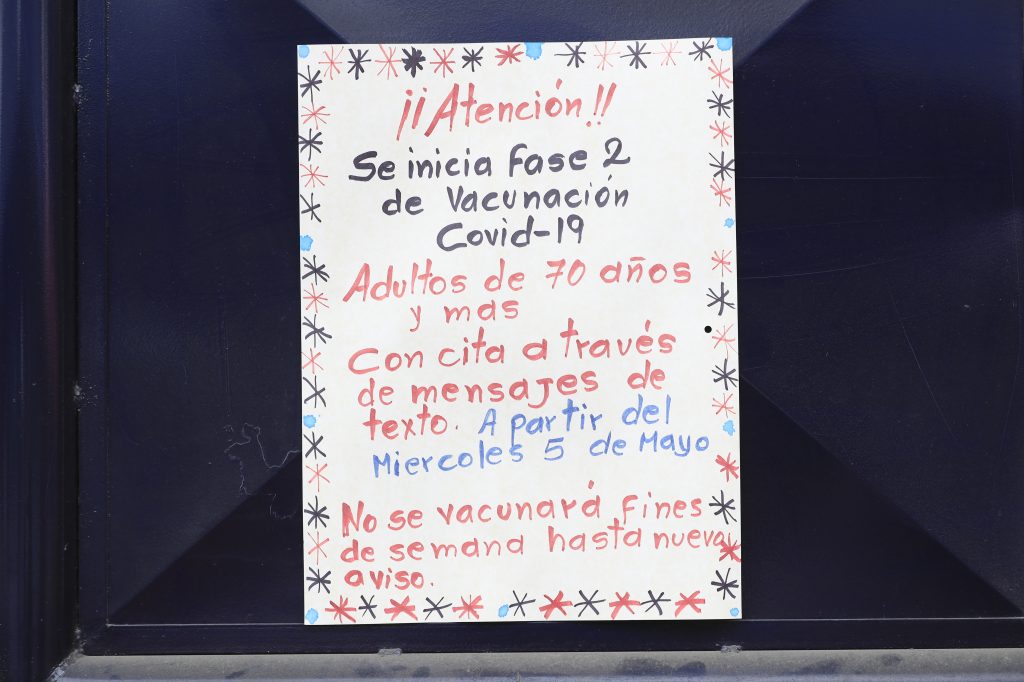 ¡¡Atención!!
Se inicia Fase 2
de Vacunación
Covid-19
Adultos de 70 años
y mas
Con cita a través
de mensajes de
texto. A partir del
Miercoles 5 de Mayo
No se vacunará Fines
de semana hasta nuevo
aviso.